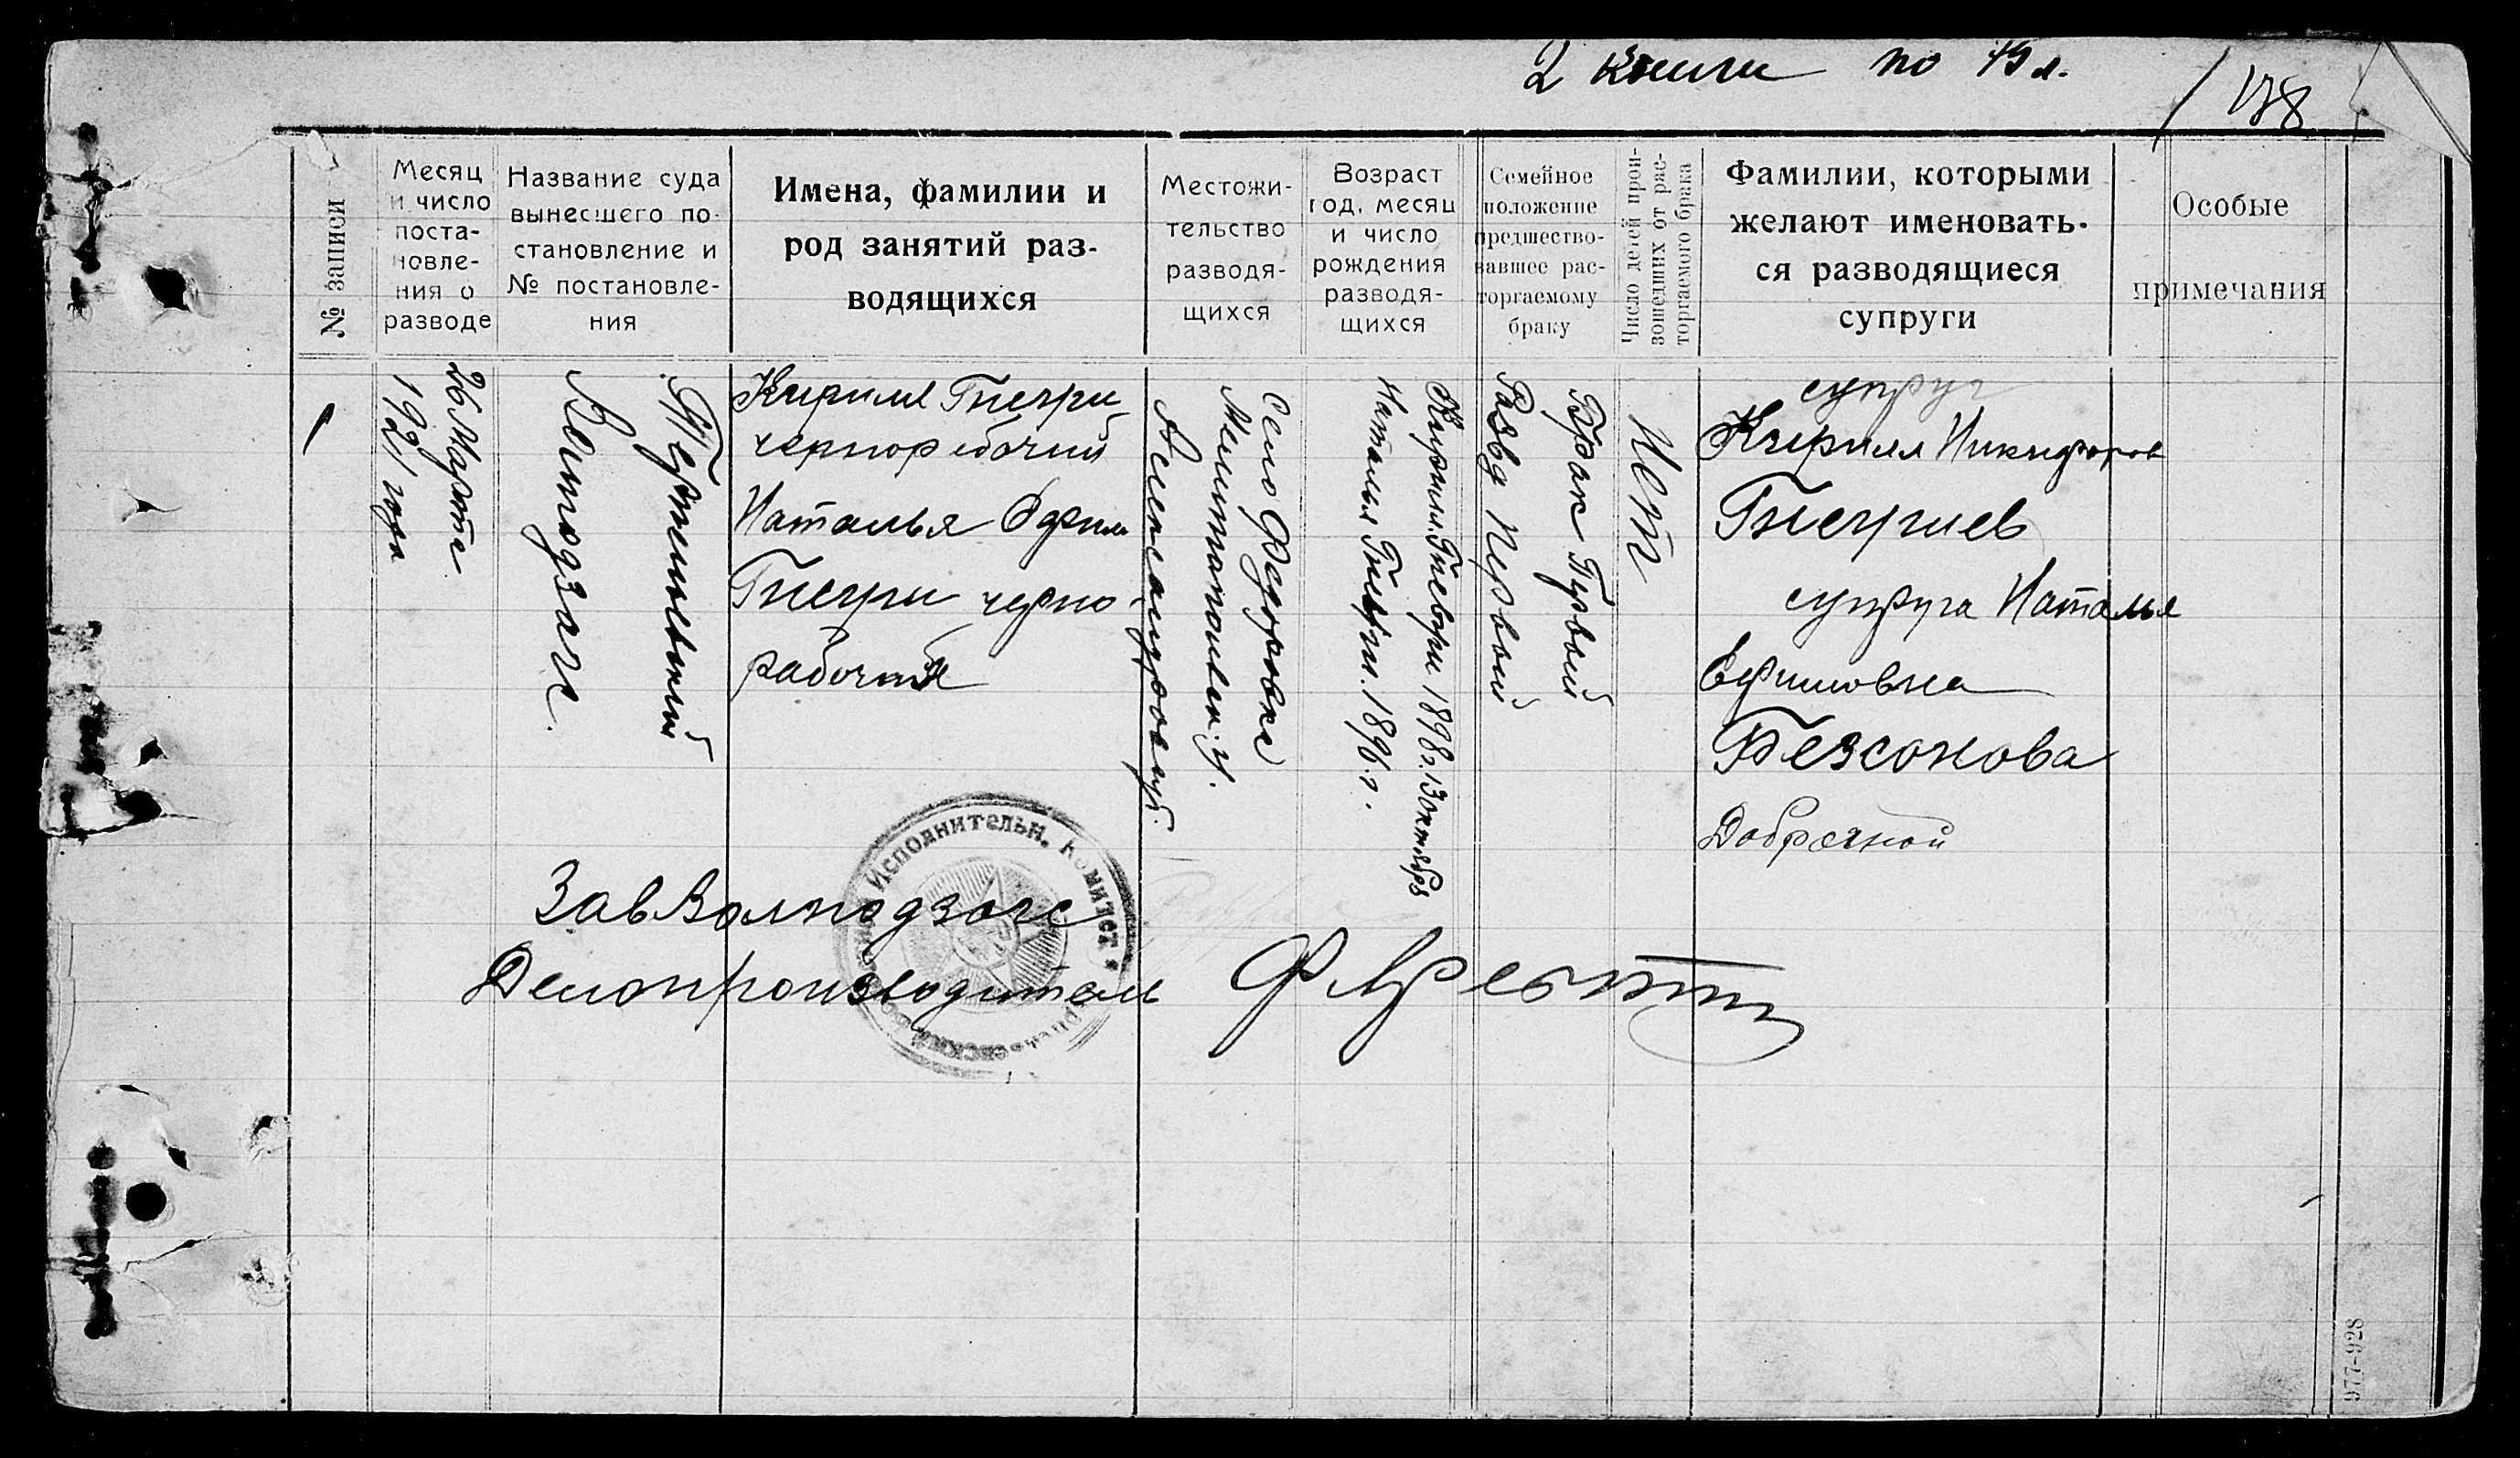 2 книги по 49 л.
178
№ записи
Месяц
и число
поста-
новле-
ния о
разводе
Название суда
вынесшего по-
становление и
№ постановле-
ния
Имена, фамилии и
род занятий раз-
водящихся
Местожи-
тельство
разводя-
щихся
Возраст
год, месяц
и число
рождения
разводя-
щихся
Семейное
положение
предшество-
вавшее рас-
торгаемому
браку
Число детей прои-
зошедших от рас-
торгаемого брака
Фамилии, которыми
желают именовать-
ся разводящиеся
супруги
Особые
примечания
1
26 Марта
1921 года
Кирилл
чернорабочий
Наталья
черно-
рабочий
Село Федоровка
Александров. губ.
Кирилл 1898 г. 13 октября
Наталья 1896 г.
Брак Первый
Развод Первый
Нет
супруг
Кирилл Никифоров
супруга Наталья
Ефимовна
Безсонова
Добрачной
Исполнительн. Комитет
ЗавВолподзагс
Делопроизводитель
977-928